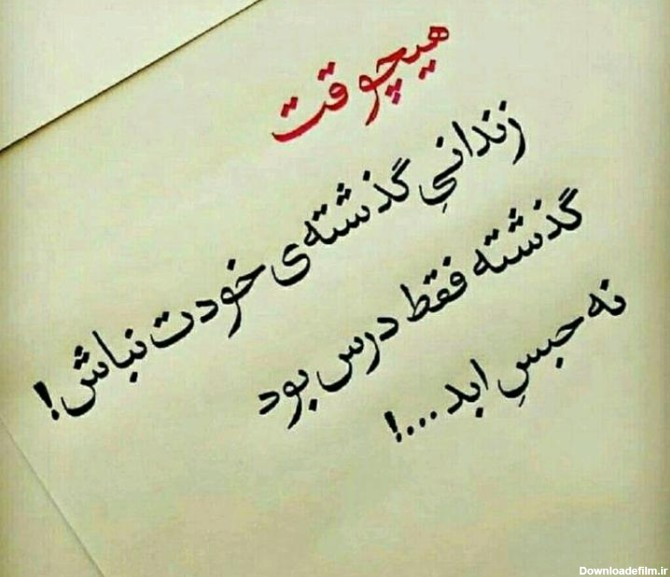 هیچوقت
زندانیِ گذشته‌ی خودت نباش!
گذشته فقط درس بود
نه حبسِ ابد...!
Downloadefilm.ir